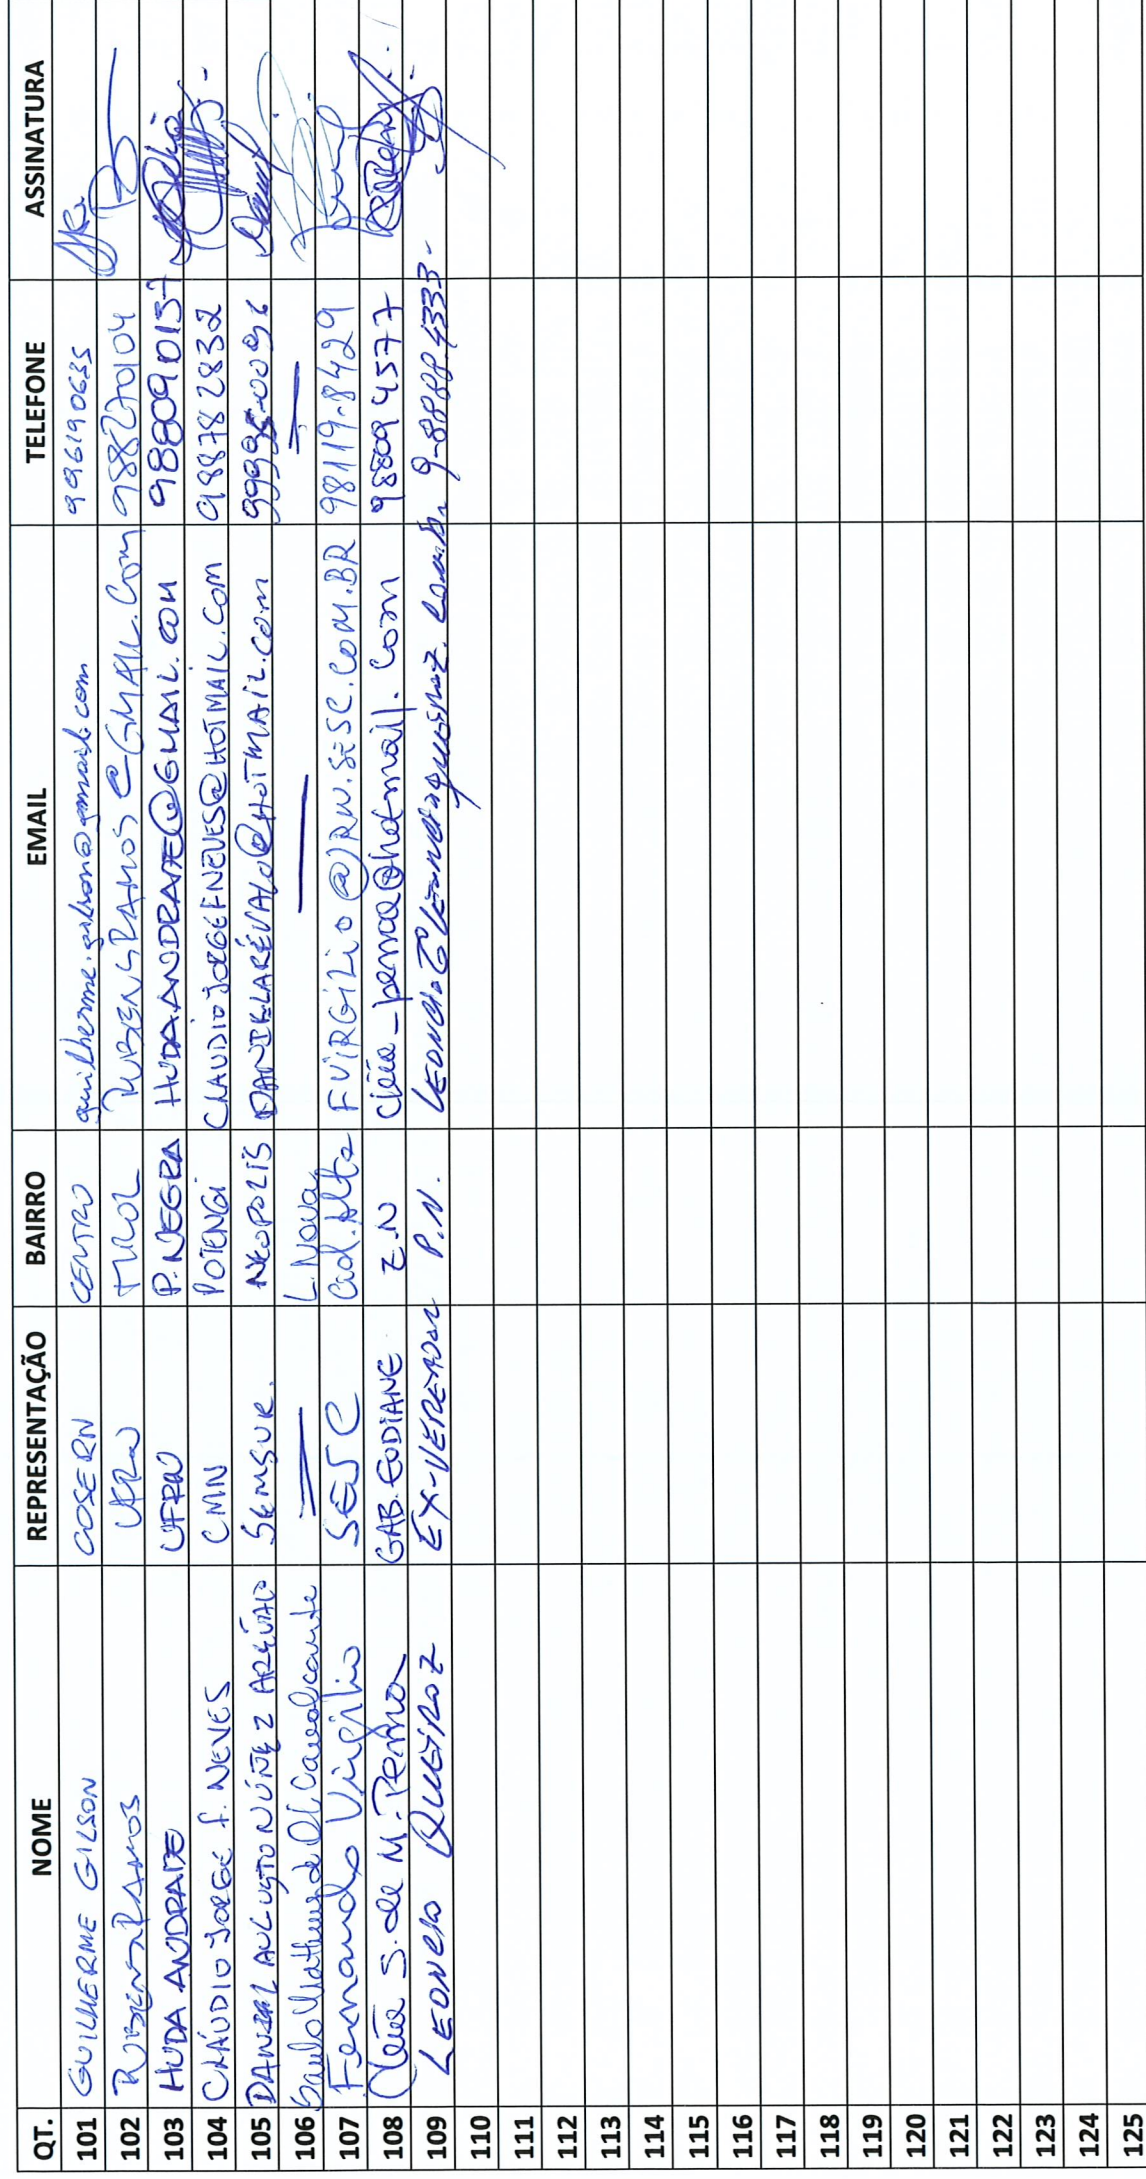 QT. NOME REPRESENTAÇÃO BAIRRO EMAIL TELEFONE ASSINATURA
101 GUILHERME GILSON COSERN CENTRO guilherme.gilson@gmail.com 996190635
102 RUBENS RAMOS UFRN TIROL RUBENSRAMOS@GMAIL.COM 988270104
103 HUDA ANDRADE UFRN P. NEGRA HUDA.ANDRADE@GMAIL.COM 988090137
104 CLÁUDIO JORGE F. NEVES CMN POTENGI CLAUDIOJORGEFNEVES@HOTMAIL.COM 988782832
105 DANIEL AUGUSTO NÚÑEZ ARÉVALO SEMSUR. NEOPOLIS DANIELARÉVALO@HOTMAIL.COM 99995-0096
106 Saulo Matheus de Cavalcante L. Nova
107 Fernando Virgílio SESC Cid. Alta FVIRGILIO@RN.SESC.COM.BR 98119-8429
108 Cléia S. de M. Penna GAB. EUDIANE Z.N cléia_penna@hotmail.com 988094577
109 LEONCIO QUEIROZ EX-VEREADOR P.N. 9-8888.4333-
110
111
112
113
114
115
116
117
118
119
120
121
122
123
124
125